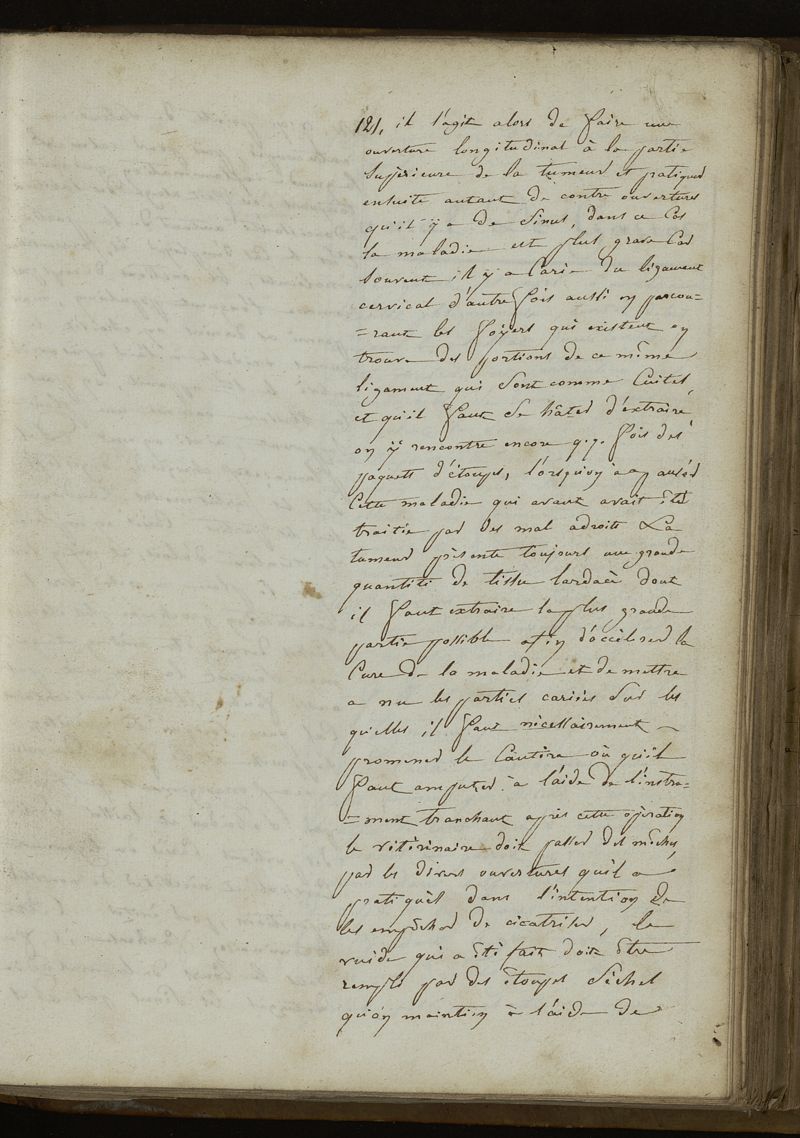 121, il s'agit alors de faire une
ouverture longitudinal à la partie
supèrieure de la tumeur et pratiquer
ensuite autant de contre ouvertures
qu'il y a de sinus, dans ce cas
la maladie est plus grave car
souvent il y a carie du ligament
cervical d'autre fois aussi en parcou-
=rant les foyers qui existent on
trouve des portions de ce même
ligament qui sont comme cuites,
et qu'il faut se hâter d'extraire
on y rencontre encore q.q. fois des
paquets d'étoupes, lorsqu'on à
cette maladie qui avant avait été
traitée par des mal adroits La
tumeur présente toujours une grande
quantité de tissu lardacé dont
il faut extraire la plus grande
partie possible afin d'accèlerer la
Cure de la maladie et de mettre
a nu les parties cariées sur les
quelles il faut nécessairement
promener le Cautère où qu'il
faut amputer à l'aide de l'instru=
=ment tranchant après cette opération
le vétèrinaire doit passer des mèches,
par les divers ouvertures qu'il a
pratiquès dans l'intention de
les empêcher de cicatriser, le
vuide qui a été fait doit être
rempli par des étoupes sèches
qu'on maintien à l'aide de